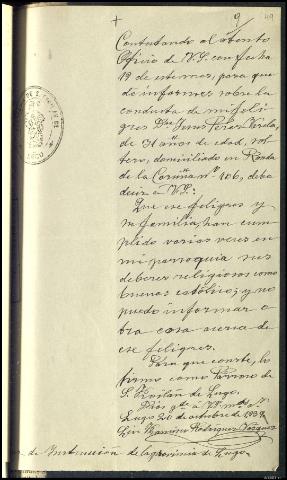 9 49
Contestando al atento
Oficio de V.S. con fecha
19 de es mes, para que
de informes sobre la
conducta de mi feli-
grés Dn Jesus Perez Varela,
de 31 años de edad, sol-
tero, domiciliado en Ronda
de la Coruña nº 106, debo
decir a V.S.:
Que ese feligres y
su familia, han cum-
plido varias veces en
mi parroquia sus
deberes religiosos como
buenos católicos; y no
puedo informar o-
tra cosa acerca de
ese feligres.
Para que conste, lo
firmo como Párroco de
S. Froilán de Lugo.
Dios gde a V.S. ms as
Lugo 20 de octubre de 1937
Ramiro Rodriguez Vazquez
de Instrucción de la provincia de Lugo.